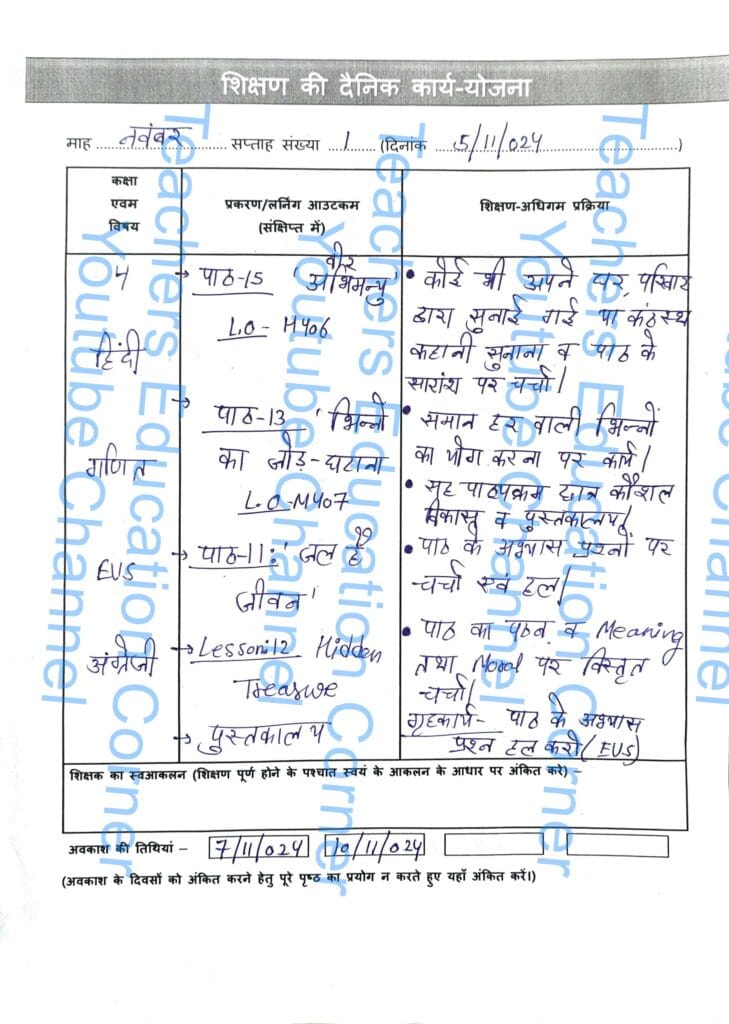 शिक्षण की दैनिक कार्य-योजना
माह ....नवंबर.... सप्ताह संख्या ...1.... (दिनांक ....5/11/024....)
कक्षा एवम विषय
प्रकरण/लर्निंग आउटकम (संक्षिप्त में)
शिक्षण-अधिगम प्रक्रिया
4
हिंदी
→ पाठ-15 'वीर अभिमन्यु'
L.O- H406
• कोई भी अपने घर, परिवार
द्वारा सुनाई गई या कंठस्थ
कहानी सुनाना व पाठ के
सारांश पर चर्चा।
गणित
→ पाठ-13 'भिन्नों
का जोड़-घटाना
L.O-M407
• समान हर वाली भिन्नों
का योग करना पर कार्य।
• सह पाठ्यक्रम छात्र कौशल
विकास व पुस्तकालय।
EVS
→ पाठ-11: 'जल है
जीवन'
• पाठ के अभ्यास प्रश्नों पर
चर्चा एवं हल।
अंग्रेजी
→ Lesson:12 Hidden
Treasure
• पाठ का पठन व Meaning
तथा Moral पर विस्तृत
चर्चा।
→ पुस्तकालय
गृहकार्य- पाठ के अभ्यास
प्रश्न हल करो (EVS)
शिक्षक का स्वआकलन (शिक्षण पूर्ण होने के पश्चात स्वयं के आकलन के आधार पर अंकित करे) –
अवकाश की तिथियां – 7/11/024 10/11/024
(अवकाश के दिवसों को अंकित करने हेतु पूरे पृष्ठ का प्रयोग न करते हुए यहाँ अंकित करें।)
Teachers Education Corner
Youtube Channel
Teachers Education Corner
Youtube Channel
Teachers Education Corner
Youtube Channel
ube Channel